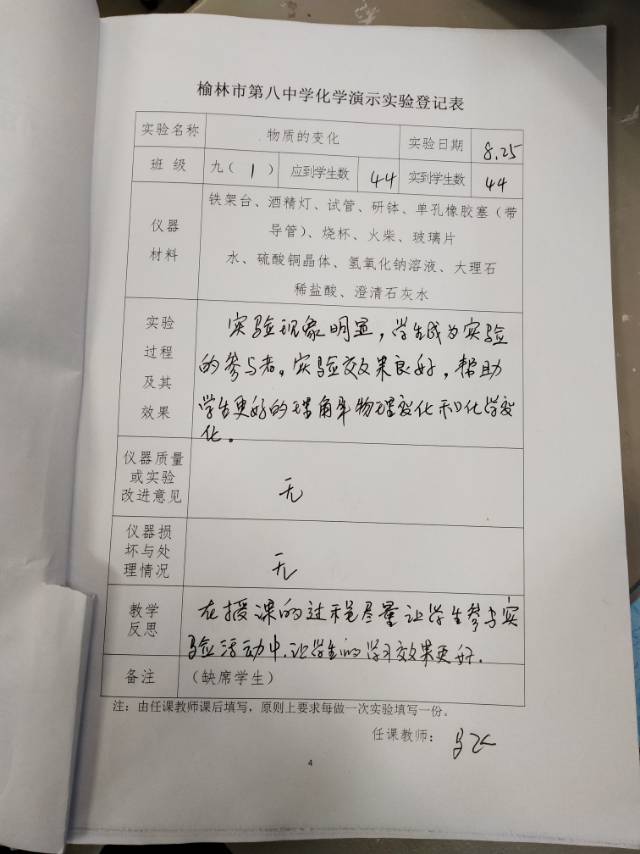 榆林市第八中学化学演示实验登记表
实验名称 物质的变化 实验日期 8.25
班 级 九( 1 ) 应到学生数 44 实到学生数 44
仪器
材料
铁架台、酒精灯、试管、研钵、单孔橡胶塞（带
导管）、烧杯、火柴、玻璃片
水、硫酸铜晶体、氢氧化钠溶液、大理石
稀盐酸、澄清石灰水
实验
过程
及其
效果
实验现象明显，学生成为实验
的参与者。实验效果良好，帮助
学生更好的理解物理变化和化学变
化。
仪器质量
或实验
改进意见
无
仪器损
坏与处
理情况
无
教学
反思
在授课的过程尽量让学生参与实
验活动中.让学生的学习效果更好.
备注 （缺席学生）
注：由任课教师课后填写，原则上要求每做一次实验填写一份。
任课教师：
4